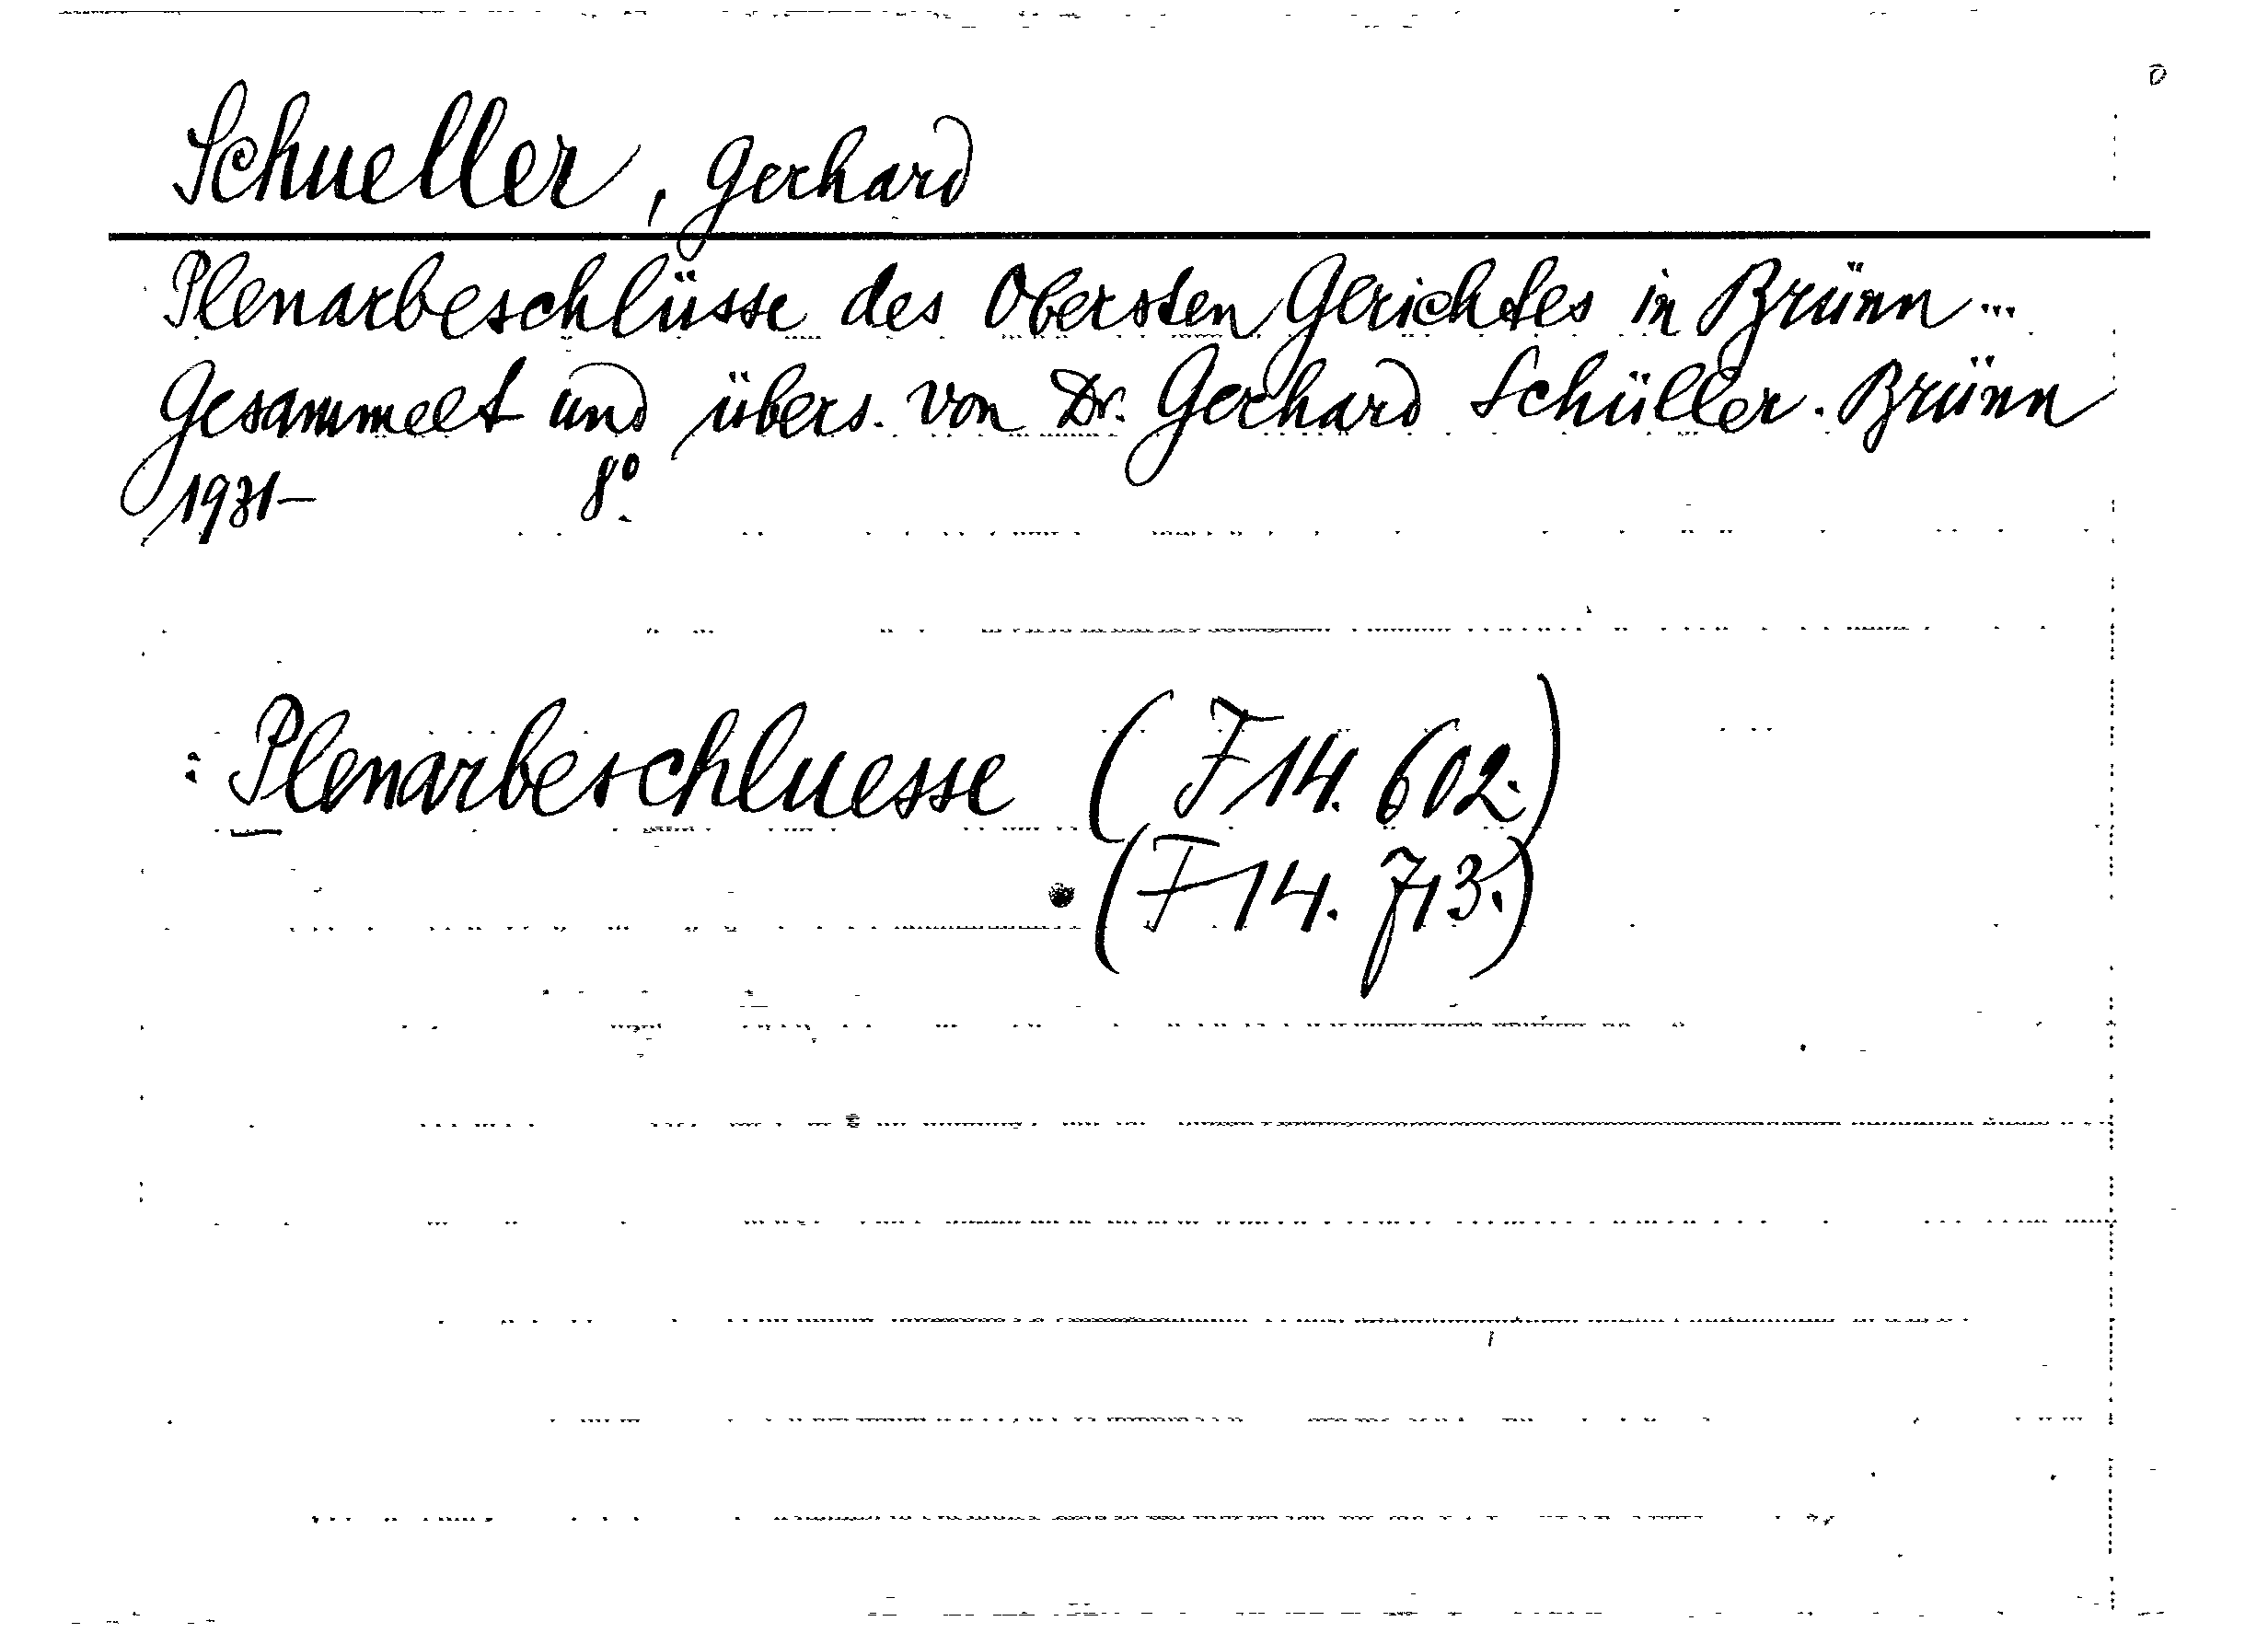 Schueller, Gerhard
Plenarbeschlüsse des Obersten Gerichtes in Brünn ...
Gesammelt und übers. von Dr. Gerhard Schüller. Brünn
1931— 8°
: Plenarbeschluesse (F 14. 602.)
(F 14. 713.)